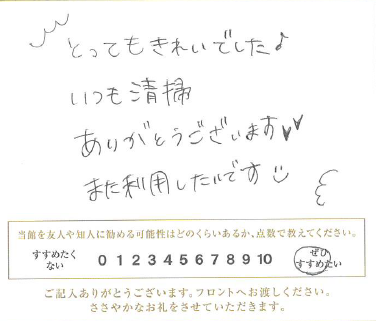 とってもきれいでした♪
いつも清掃
ありがとうございます♥♥
また利用したいです☺
当館を友人や知人に勧める可能性はどのくらいあるか、点数で教えてください。
すすめたく
ない
0 1 2 3 4 5 6 7 8 9 10
ぜひ
すすめたい
ご記入ありがとうございます。フロントへお渡しください。
ささやかなお礼をさせていただきます。